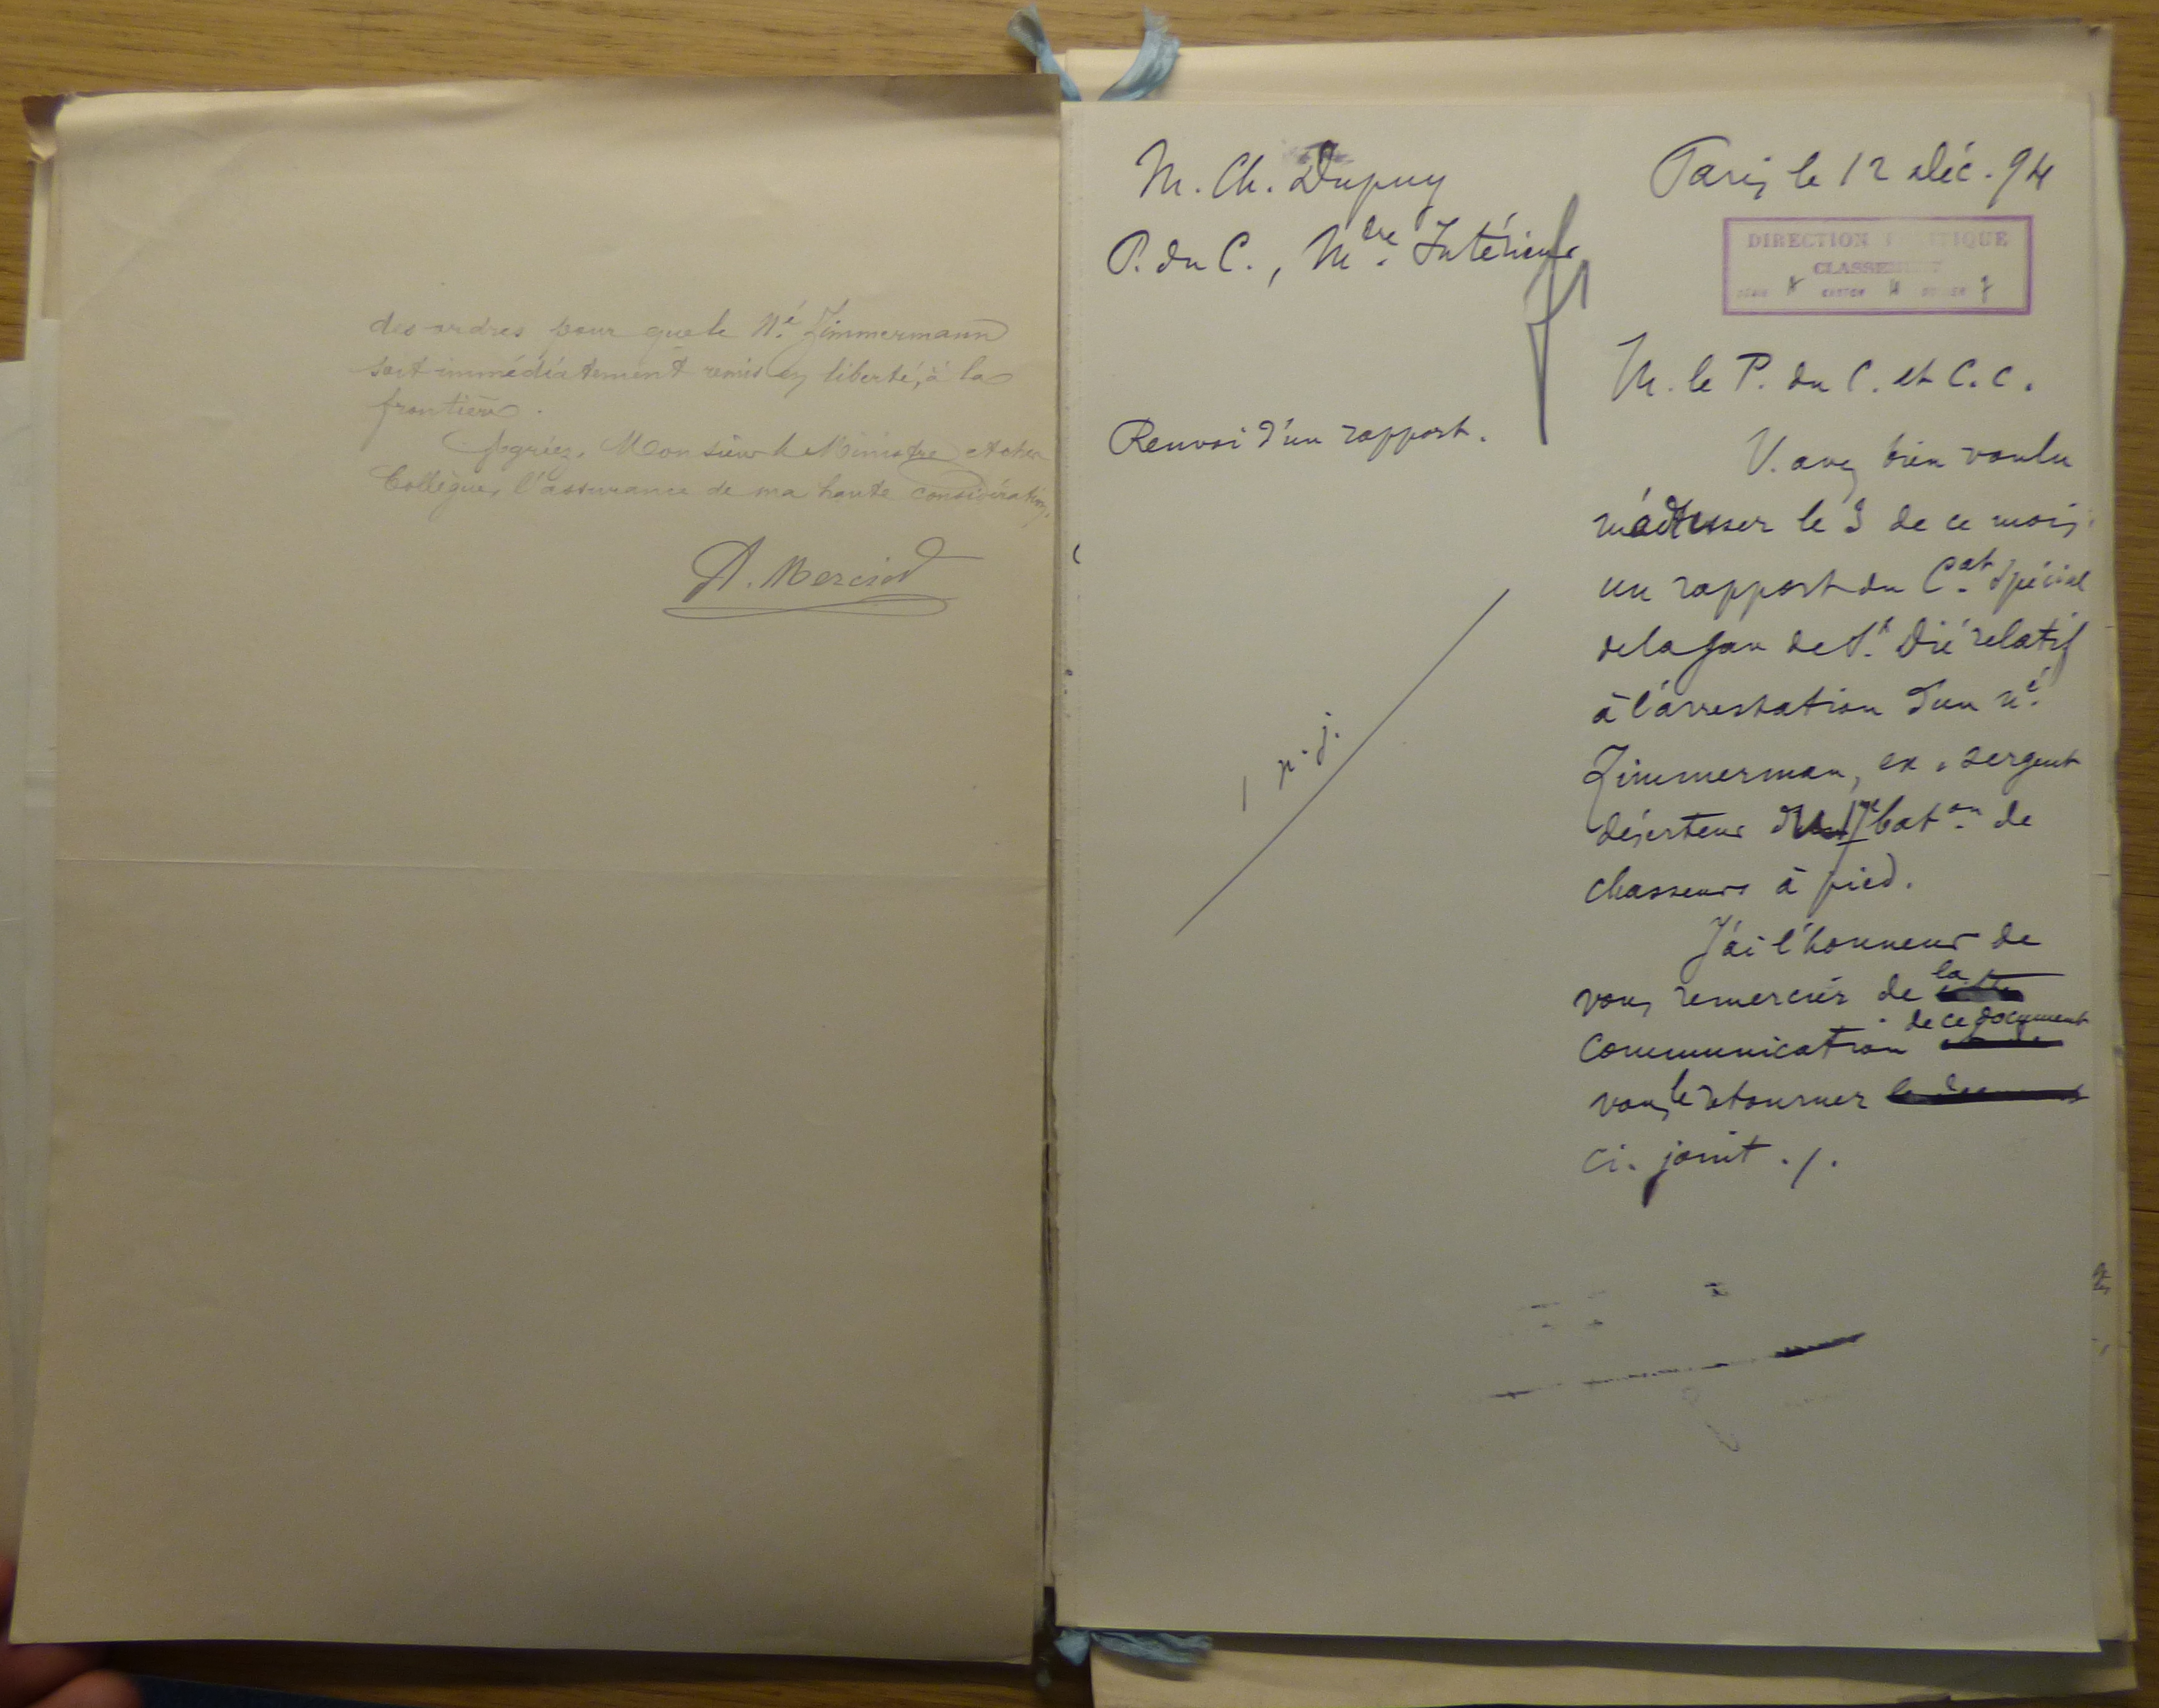 des ordres pour que le N.é Zimmermann
soit immédiatement remis en liberté, à la
frontière.
Agréez, Monsieur le Ministre et cher
Collègue, l'assurance de ma haute considération.
A. Mercier
M. Ch. Dupuy
P. du C., M.dre Intérieur
Renvoi d'un rapport.
1 p. j.
Paris, le 12 Déc. 94
DIRECTION POLITIQUE
CLASSEMENT
SÉRIE A CARTON 11 DOSSIER 7
M. le P. du C. et C. C.
V. avez bien voulu
m'adresser le 3 de ce mois,
un rapport du C.at Spécial
de la gare de St. Dié relatif
à l'arrestation d'un n.é
Zimmerman, ex-sergent
déserteur du bat.on de
chasseurs à pied.
J'ai l'honneur de
vous remercier de la
de ce document
communication
vous le retourner
ci-joint ./.